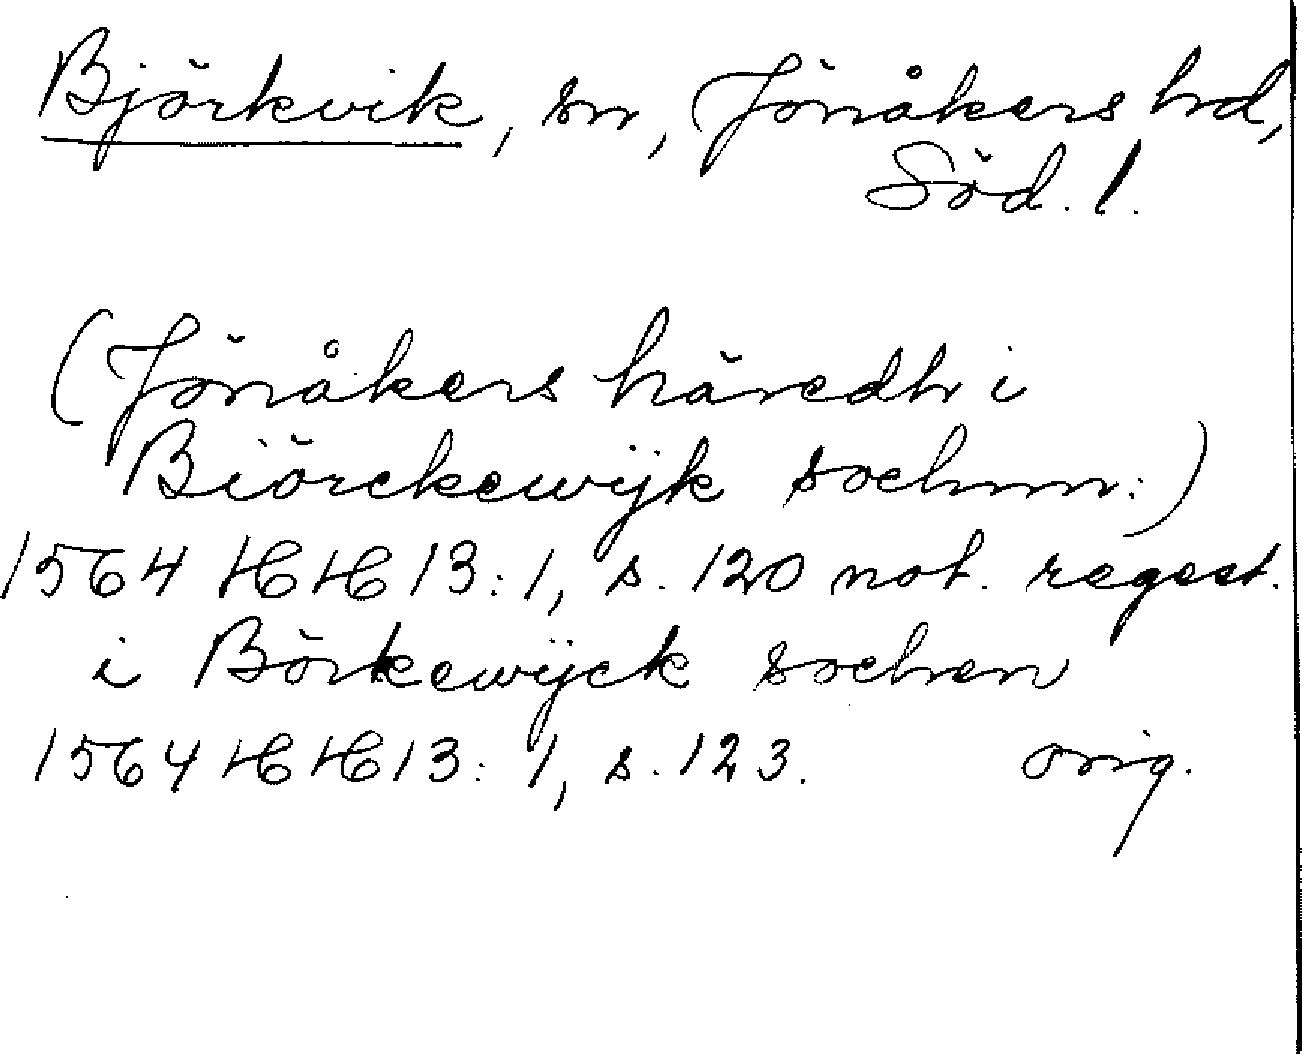 Björkvik, sn, Jönåkers hrd,
Söd. l.
(Jönåkers häredh i
Biörckewijk sochnn:)
1564 HH 13:1, s. 120 not. regest.
i Börkewijck sochen
1564 HH 13:1, s. 123. orig.